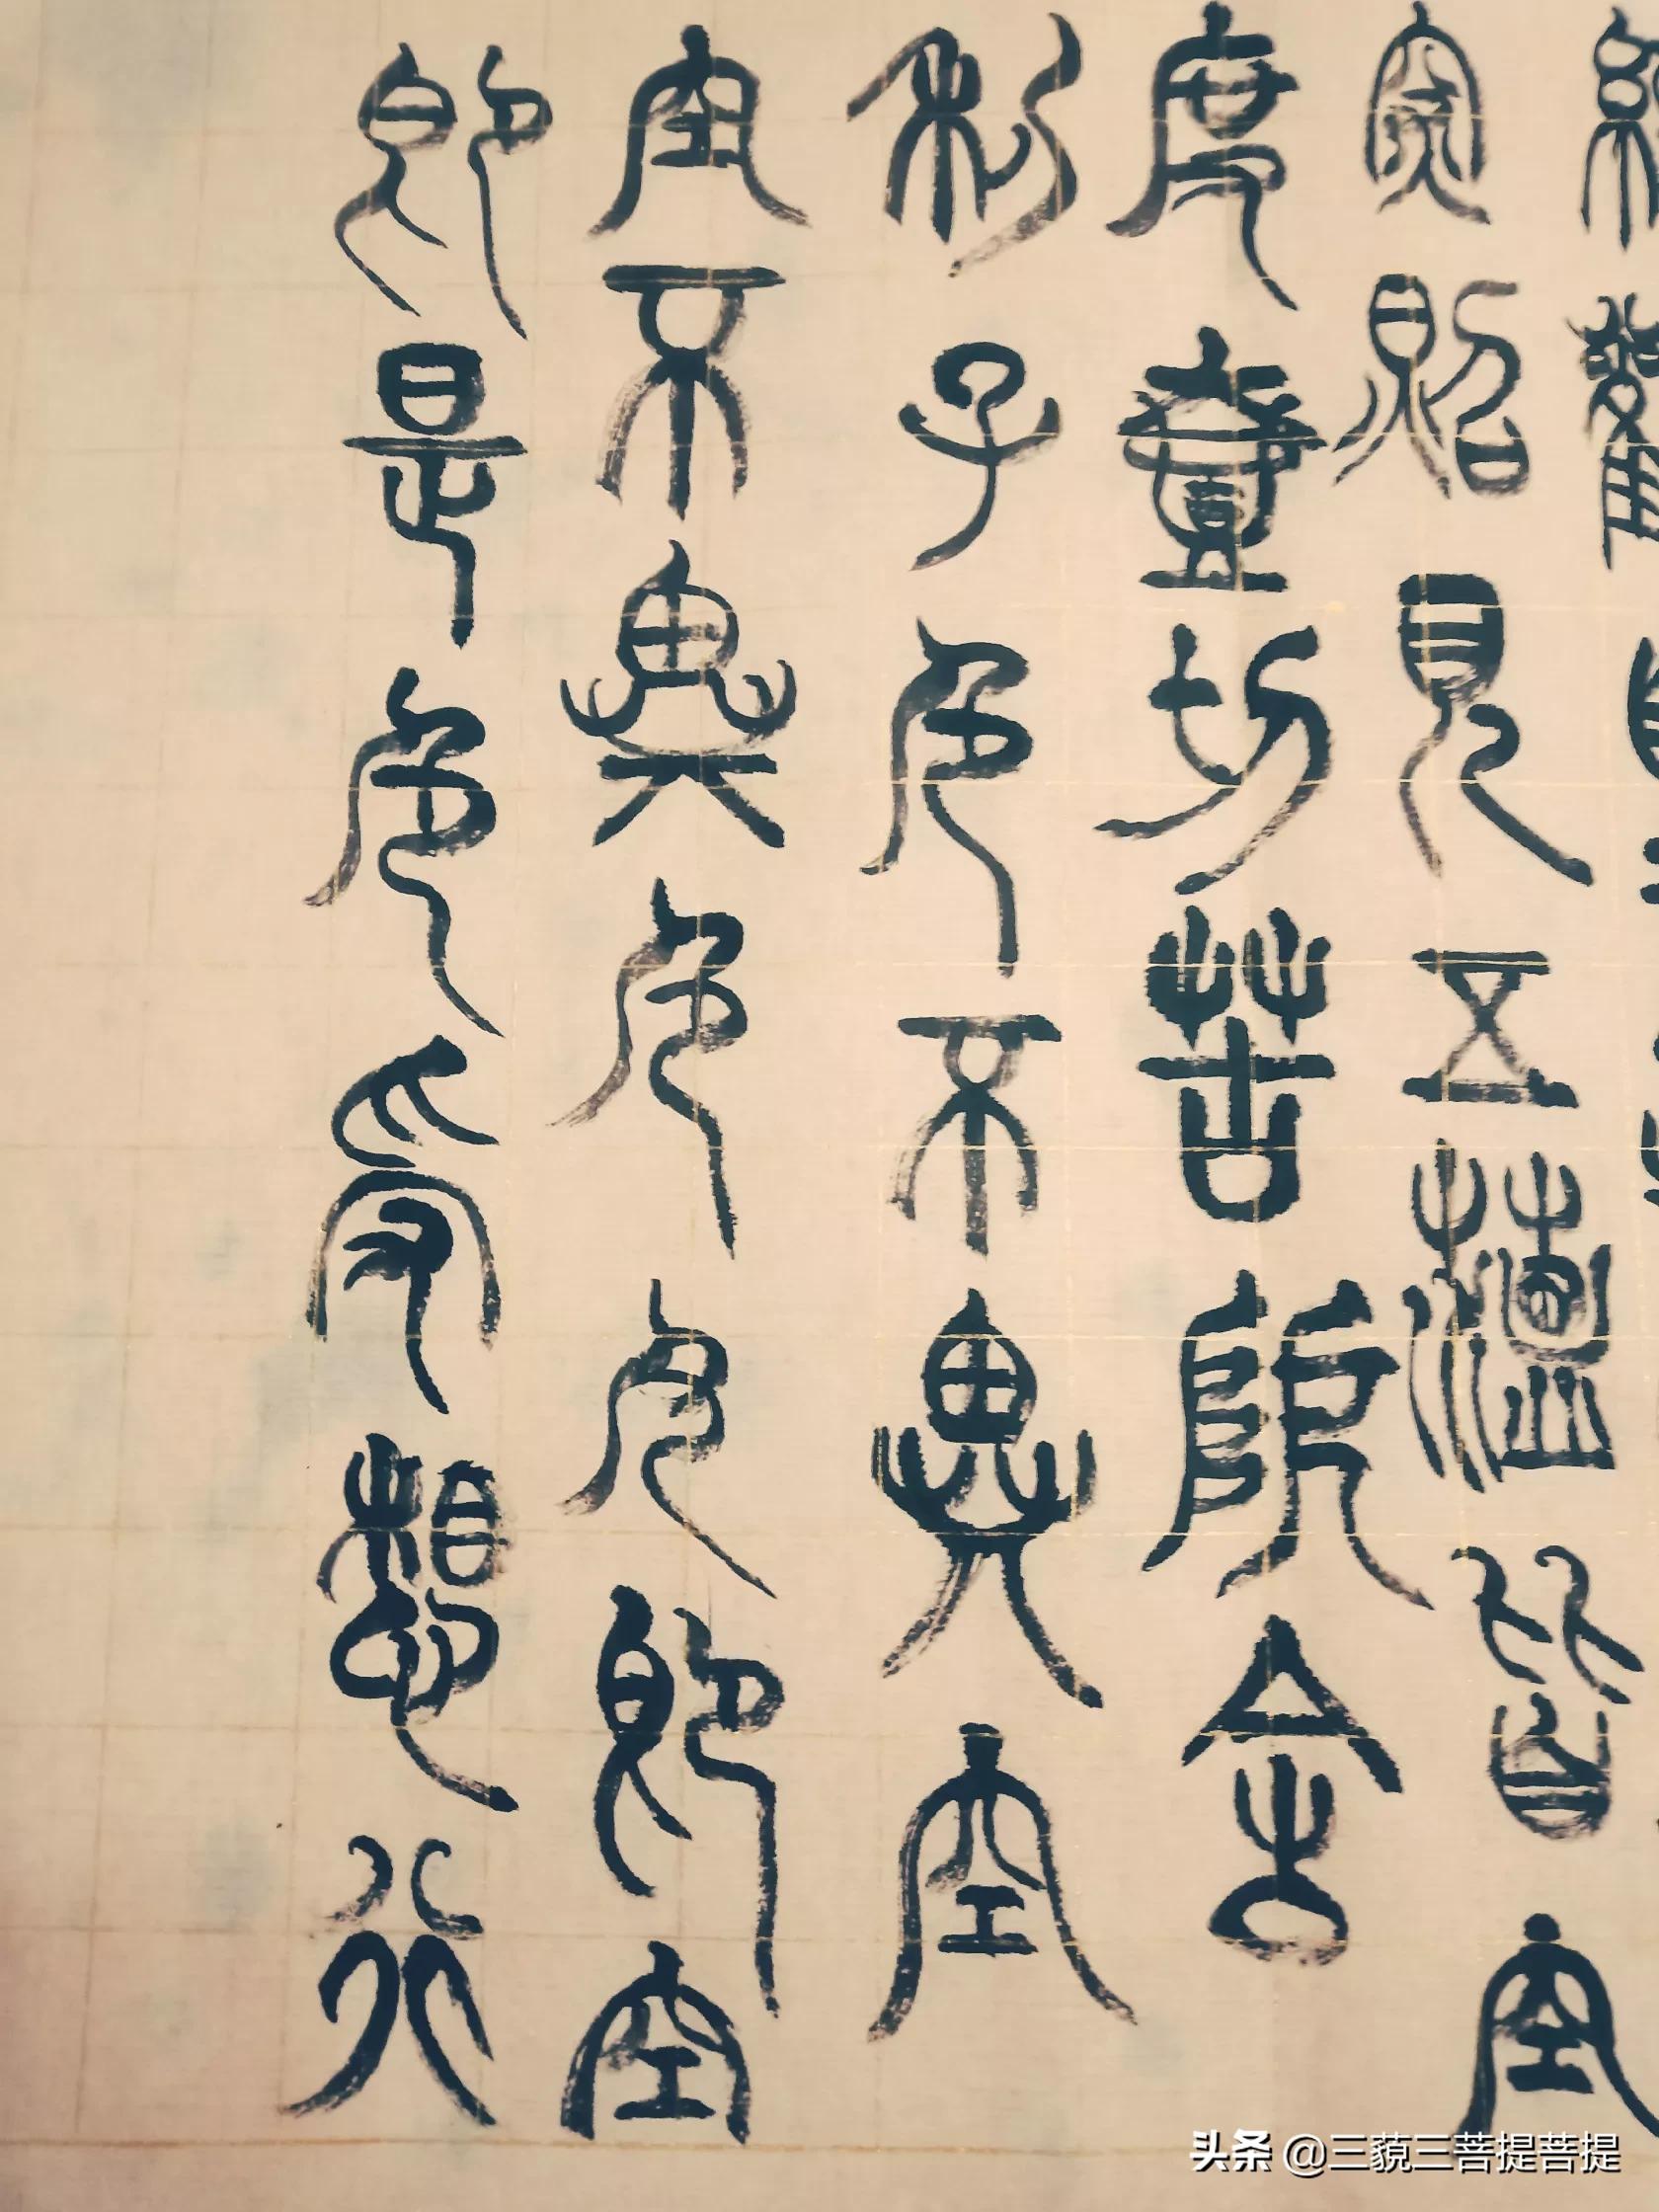 經觀
照見五蘊皆空
度壹切苦阨舍
利子色不異空
空不異色色即空
即是色受想行
头条 @三藐三菩提菩提